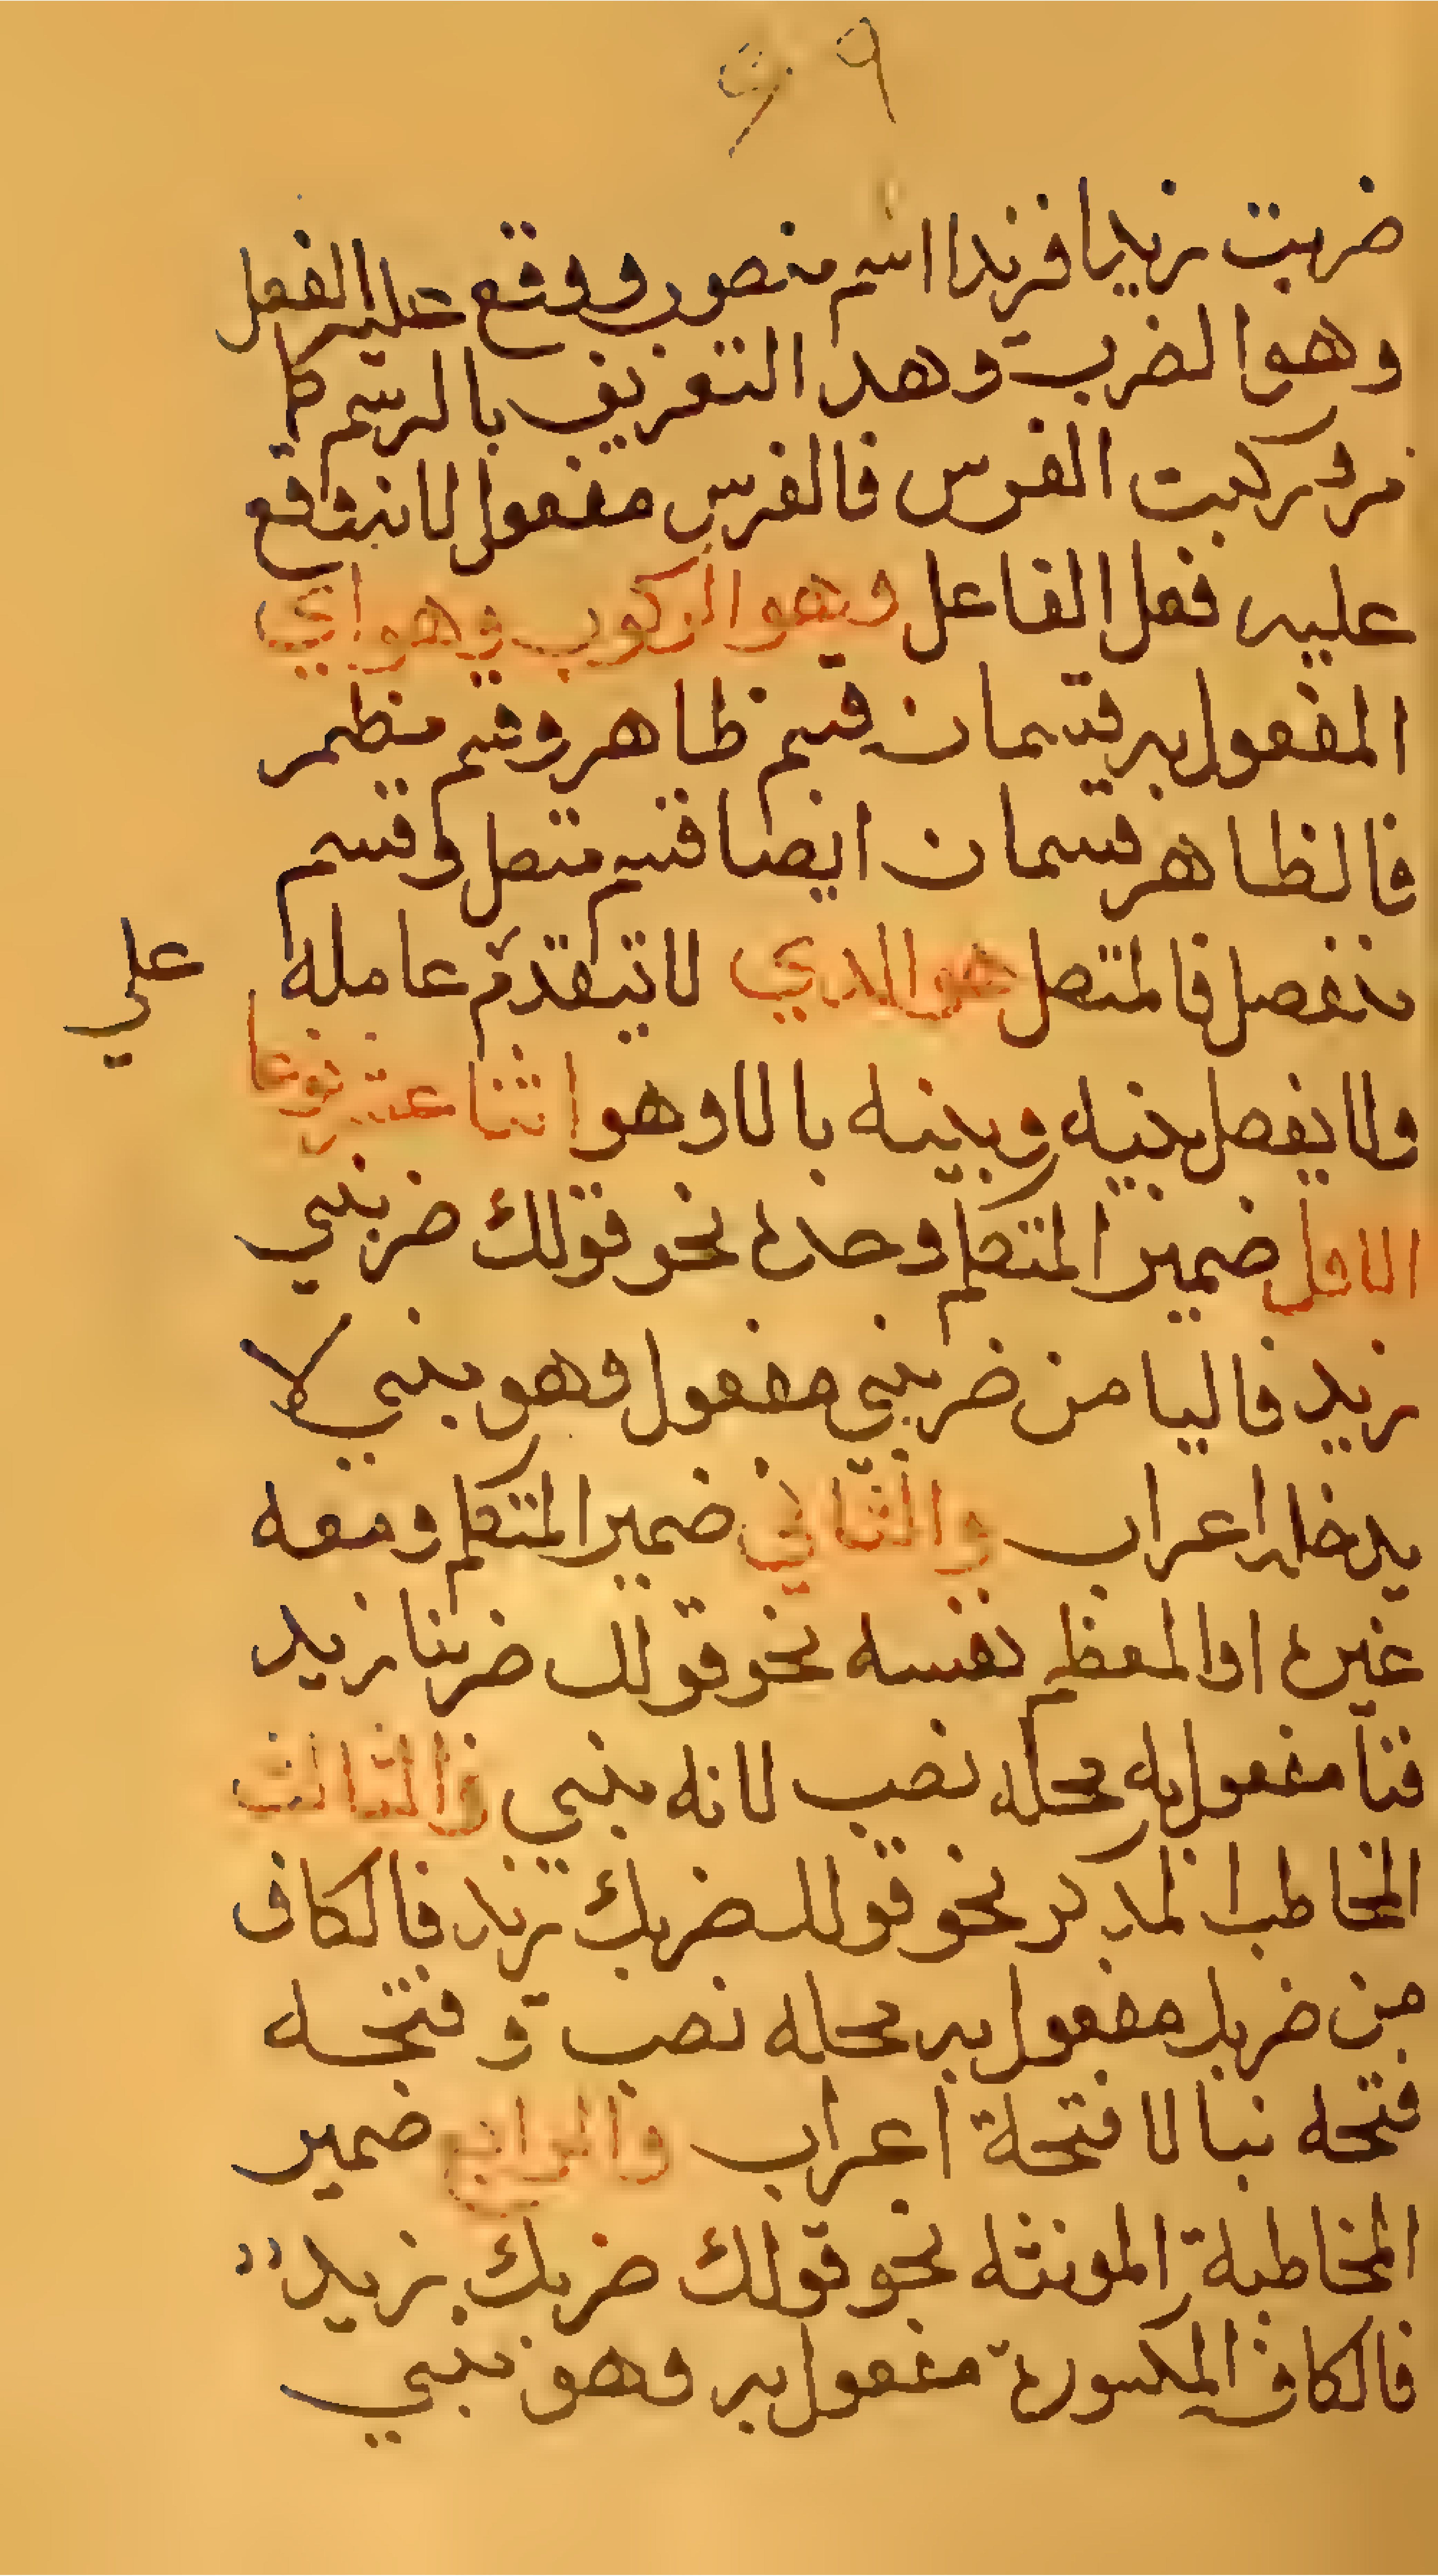 ضربت زيدا فزيدا اسم منصوب ووقع عليه الفعل
وهو الضرب وهدا التعريف بالرسم كما
مر وركبت الفرس فالفرس مفعول لانه وقع
عليه فعل الفاعل وهو الركوب وهو اي
المفعول به قسمان قسم ظاهر وقسم مظمر
فالظاهر قسمان ايضا قسم متصل وقسم
منفصل فالمتصل هو الدي لا يتقدم عامله
علي
ولا يفصل بنيه وبينه بالا وهو اثنا عشر نوعا
الاول ضمير المتكلم وحده نحو قولك ضربني
زيد فاليا من ضربني مفعول وهو مبني لا
يدخله اعراب والثاني ضمير المتكلم ومعه
غيره او المعظم نفسه نحو قولك ضربنا زيد
فنا مفعول به محله نصب لانه مبني والثالث
المخاطب المدكر نحو قولك ضربك زيد فالكاف
من ضربك مفعول به محله نصب و فتحه
فتحه بنا لا فتحة اعراب والرابع ضمير
المخاطبة المونثه نحو قولك ضربك زيد
فالكاف المكسورة مفعول به وهو مبني